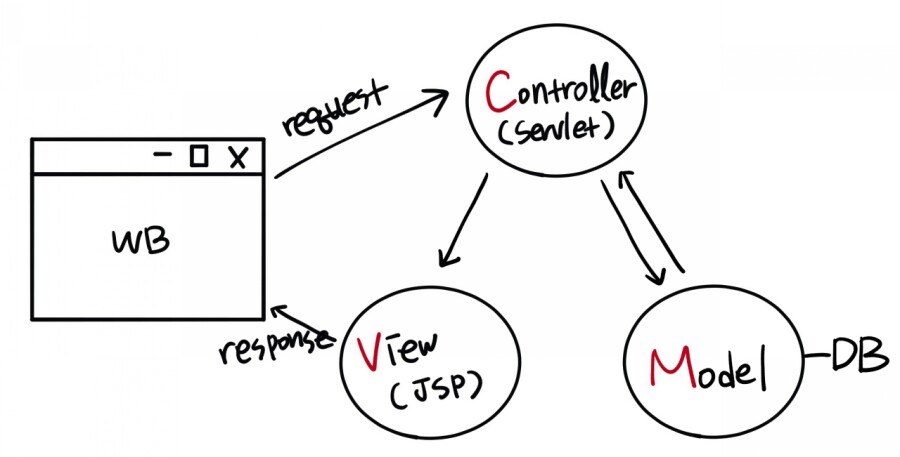 request
Controller
(Servlet)
WB
response
View
(JSP)
Model
DB